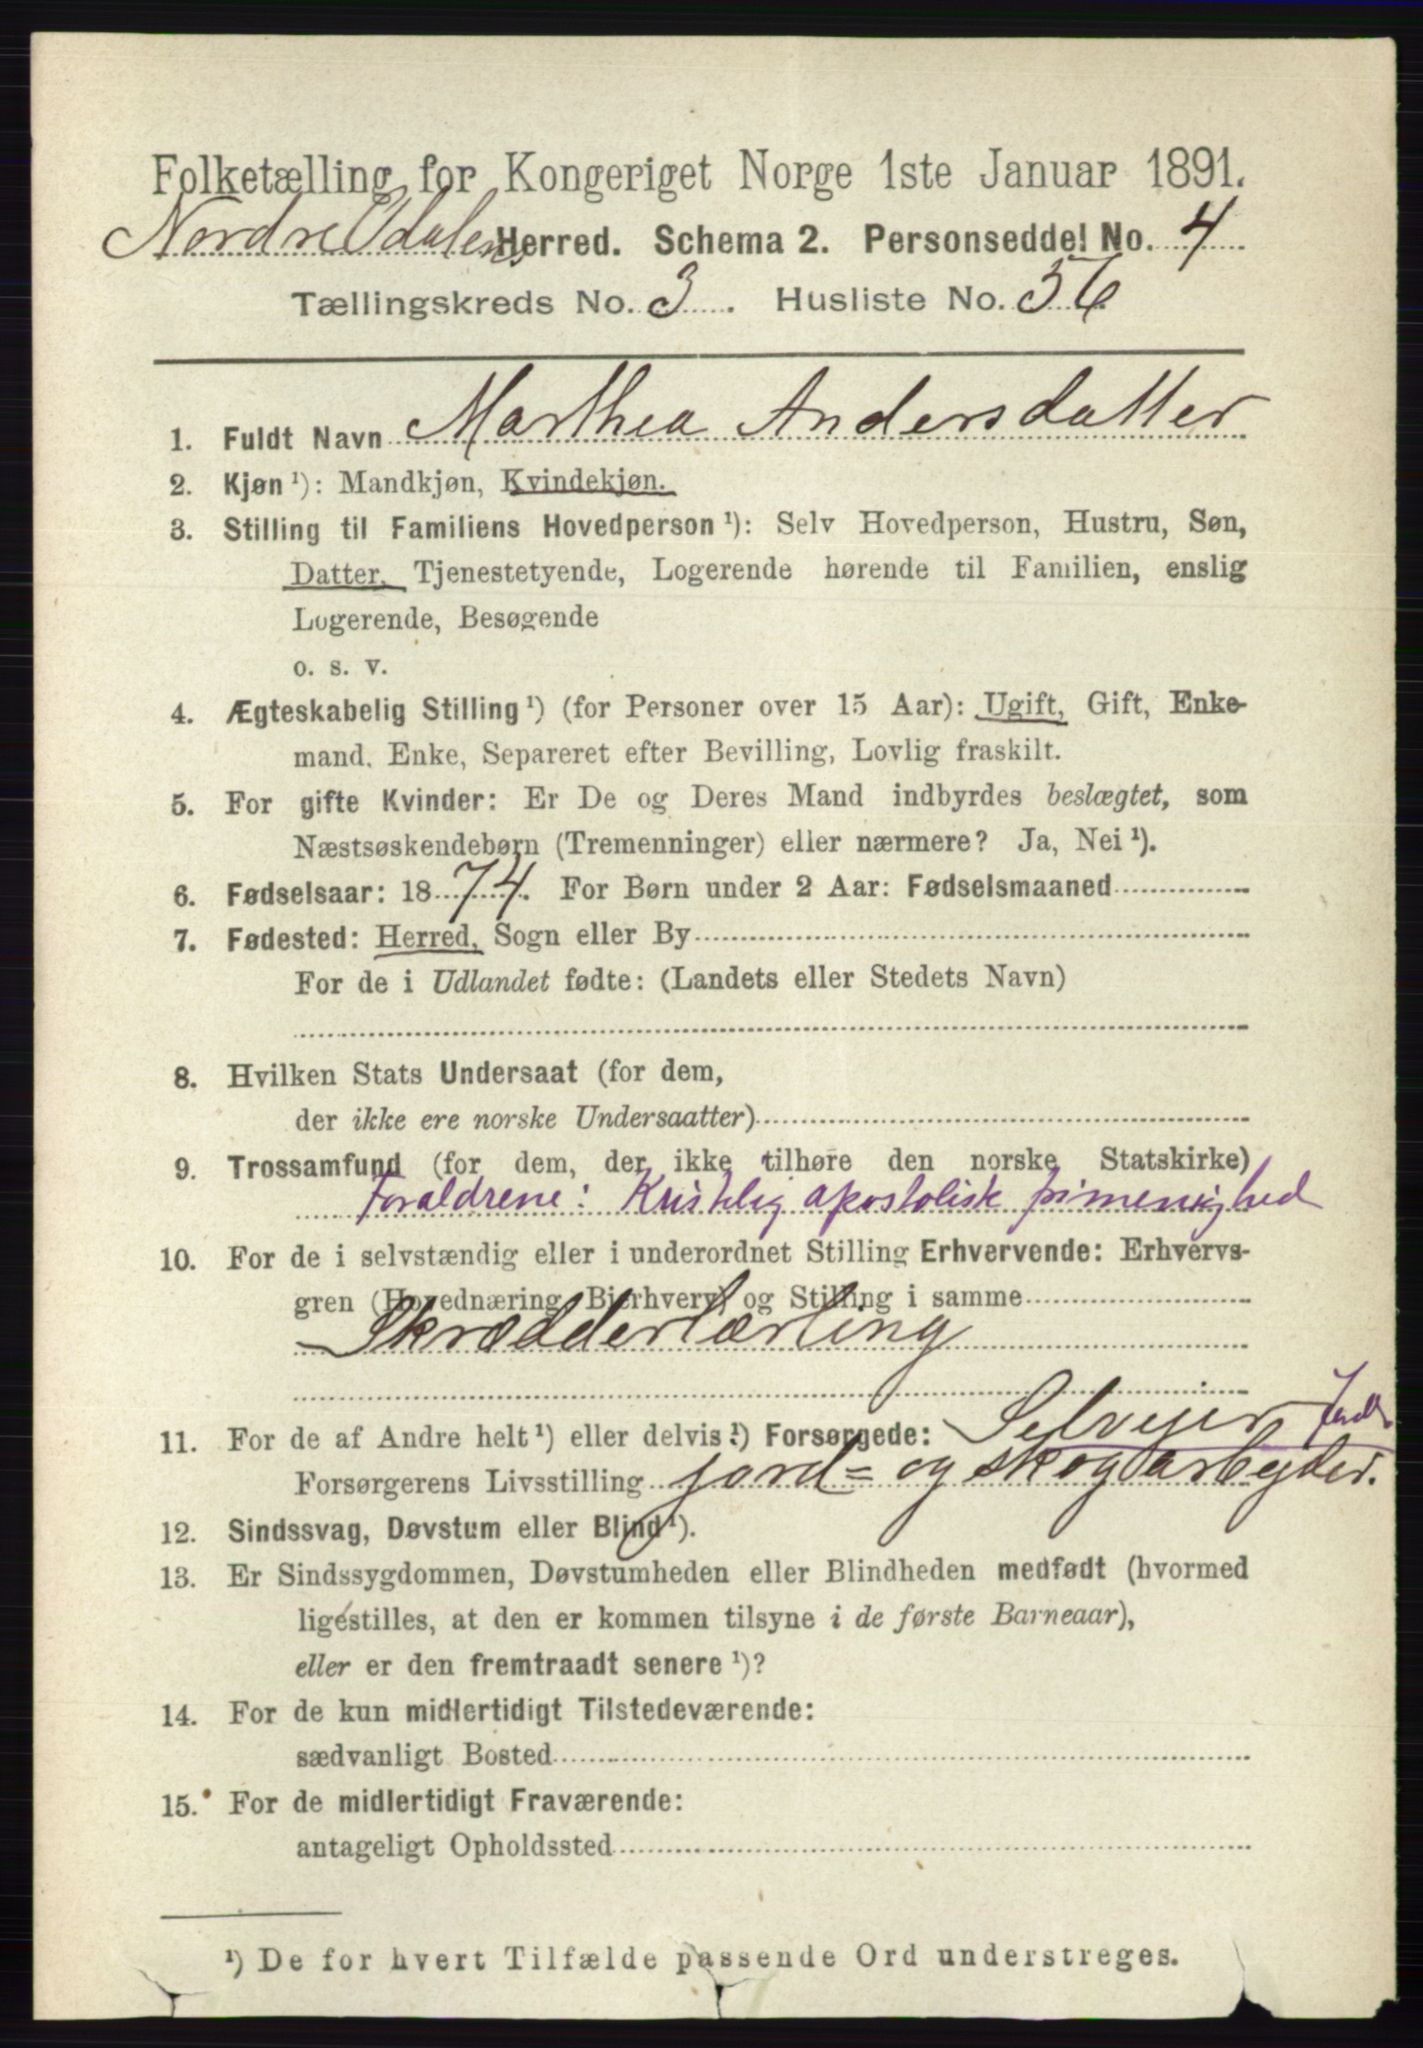 Folketælling for Kongeriget Norge 1ste Januar 1891.
Nordre Odalens Herred. Schema 2. Personseddel No. 4
Tællingskreds No. 3. Husliste No. 56
1. Fuldt Navn Marthea Andersdatter
2. Kjøn ¹): Mandkjøn, Kvindekjøn.
3. Stilling til Familiens Hovedperson ¹): Selv Hovedperson, Hustru, Søn,
Datter, Tjenestetyende, Logerende hørende til Familien, enslig
Logerende, Besøgende
o. s. v.
4. Ægteskabelig Stilling ¹) (for Personer over 15 Aar): Ugift, Gift, Enke-
mand, Enke, Separeret efter Bevilling, Lovlig fraskilt.
5. For gifte Kvinder: Er De og Deres Mand indbyrdes beslægtet, som
Næstsøskendebørn (Tremenninger) eller nærmere? Ja, Nei ¹).
6. Fødselsaar: 1874. For Børn under 2 Aar: Fødselsmaaned
7. Fødested: Herred, Sogn eller By
For de i Udlandet fødte: (Landets eller Stedets Navn)
8. Hvilken Stats Undersaat (for dem,
der ikke ere norske Undersaatter)
9. Trossamfund (for dem, der ikke tilhøre den norske Statskirke)
Foraldrene: Kristelig apostolisk
10. For de i selvstændig eller i underordnet Stilling Erhvervende: Erhvervs-
gren (Hovednæring, Bierhverv) og Stilling i samme
Skrædderlærling
11. For de af Andre helt ¹) eller delvis ¹) Forsørgede: Selvejer,
Forsørgerens Livsstilling jord- og skogarbejder.
12. Sindssvag, Døvstum eller Blind ¹).
13. Er Sindssygdommen, Døvstumheden eller Blindheden medfødt (hvormed
ligestilles, at den er kommen tilsyne i de første Barneaar),
eller er den fremtraadt senere ¹)?
14. For de kun midlertidigt Tilstedeværende:
sædvanligt Bosted
15. For de midlertidigt Fraværende:
antageligt Opholdssted
¹) De for hvert Tilfælde passende Ord understreges.